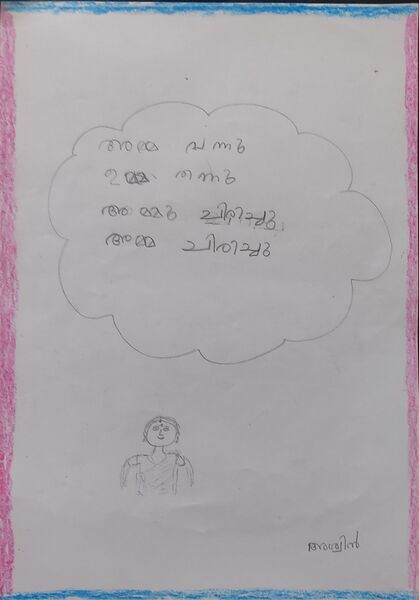 അമ്മ വന്നു
ഉമ്മ തന്നു
അമ്മു ചിരിച്ചു
അമ്മ ചിരിച്ചു
അശ്വിൻ